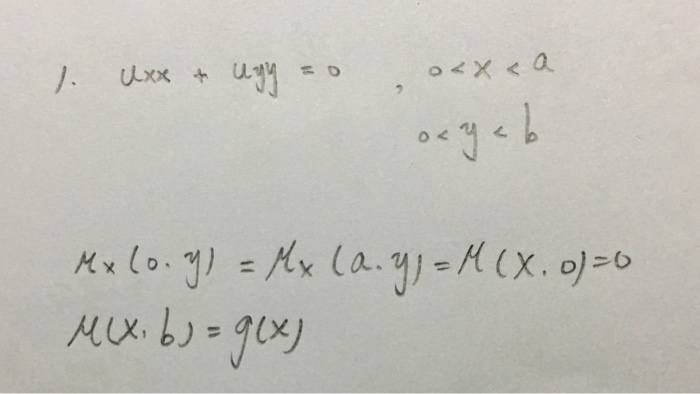 1. uxx + uyy = 0 , 0 < x < a
0 < y < b
ux (0. y) = ux (a. y) = u(x. 0) = 0
u(x. b) = g(x)